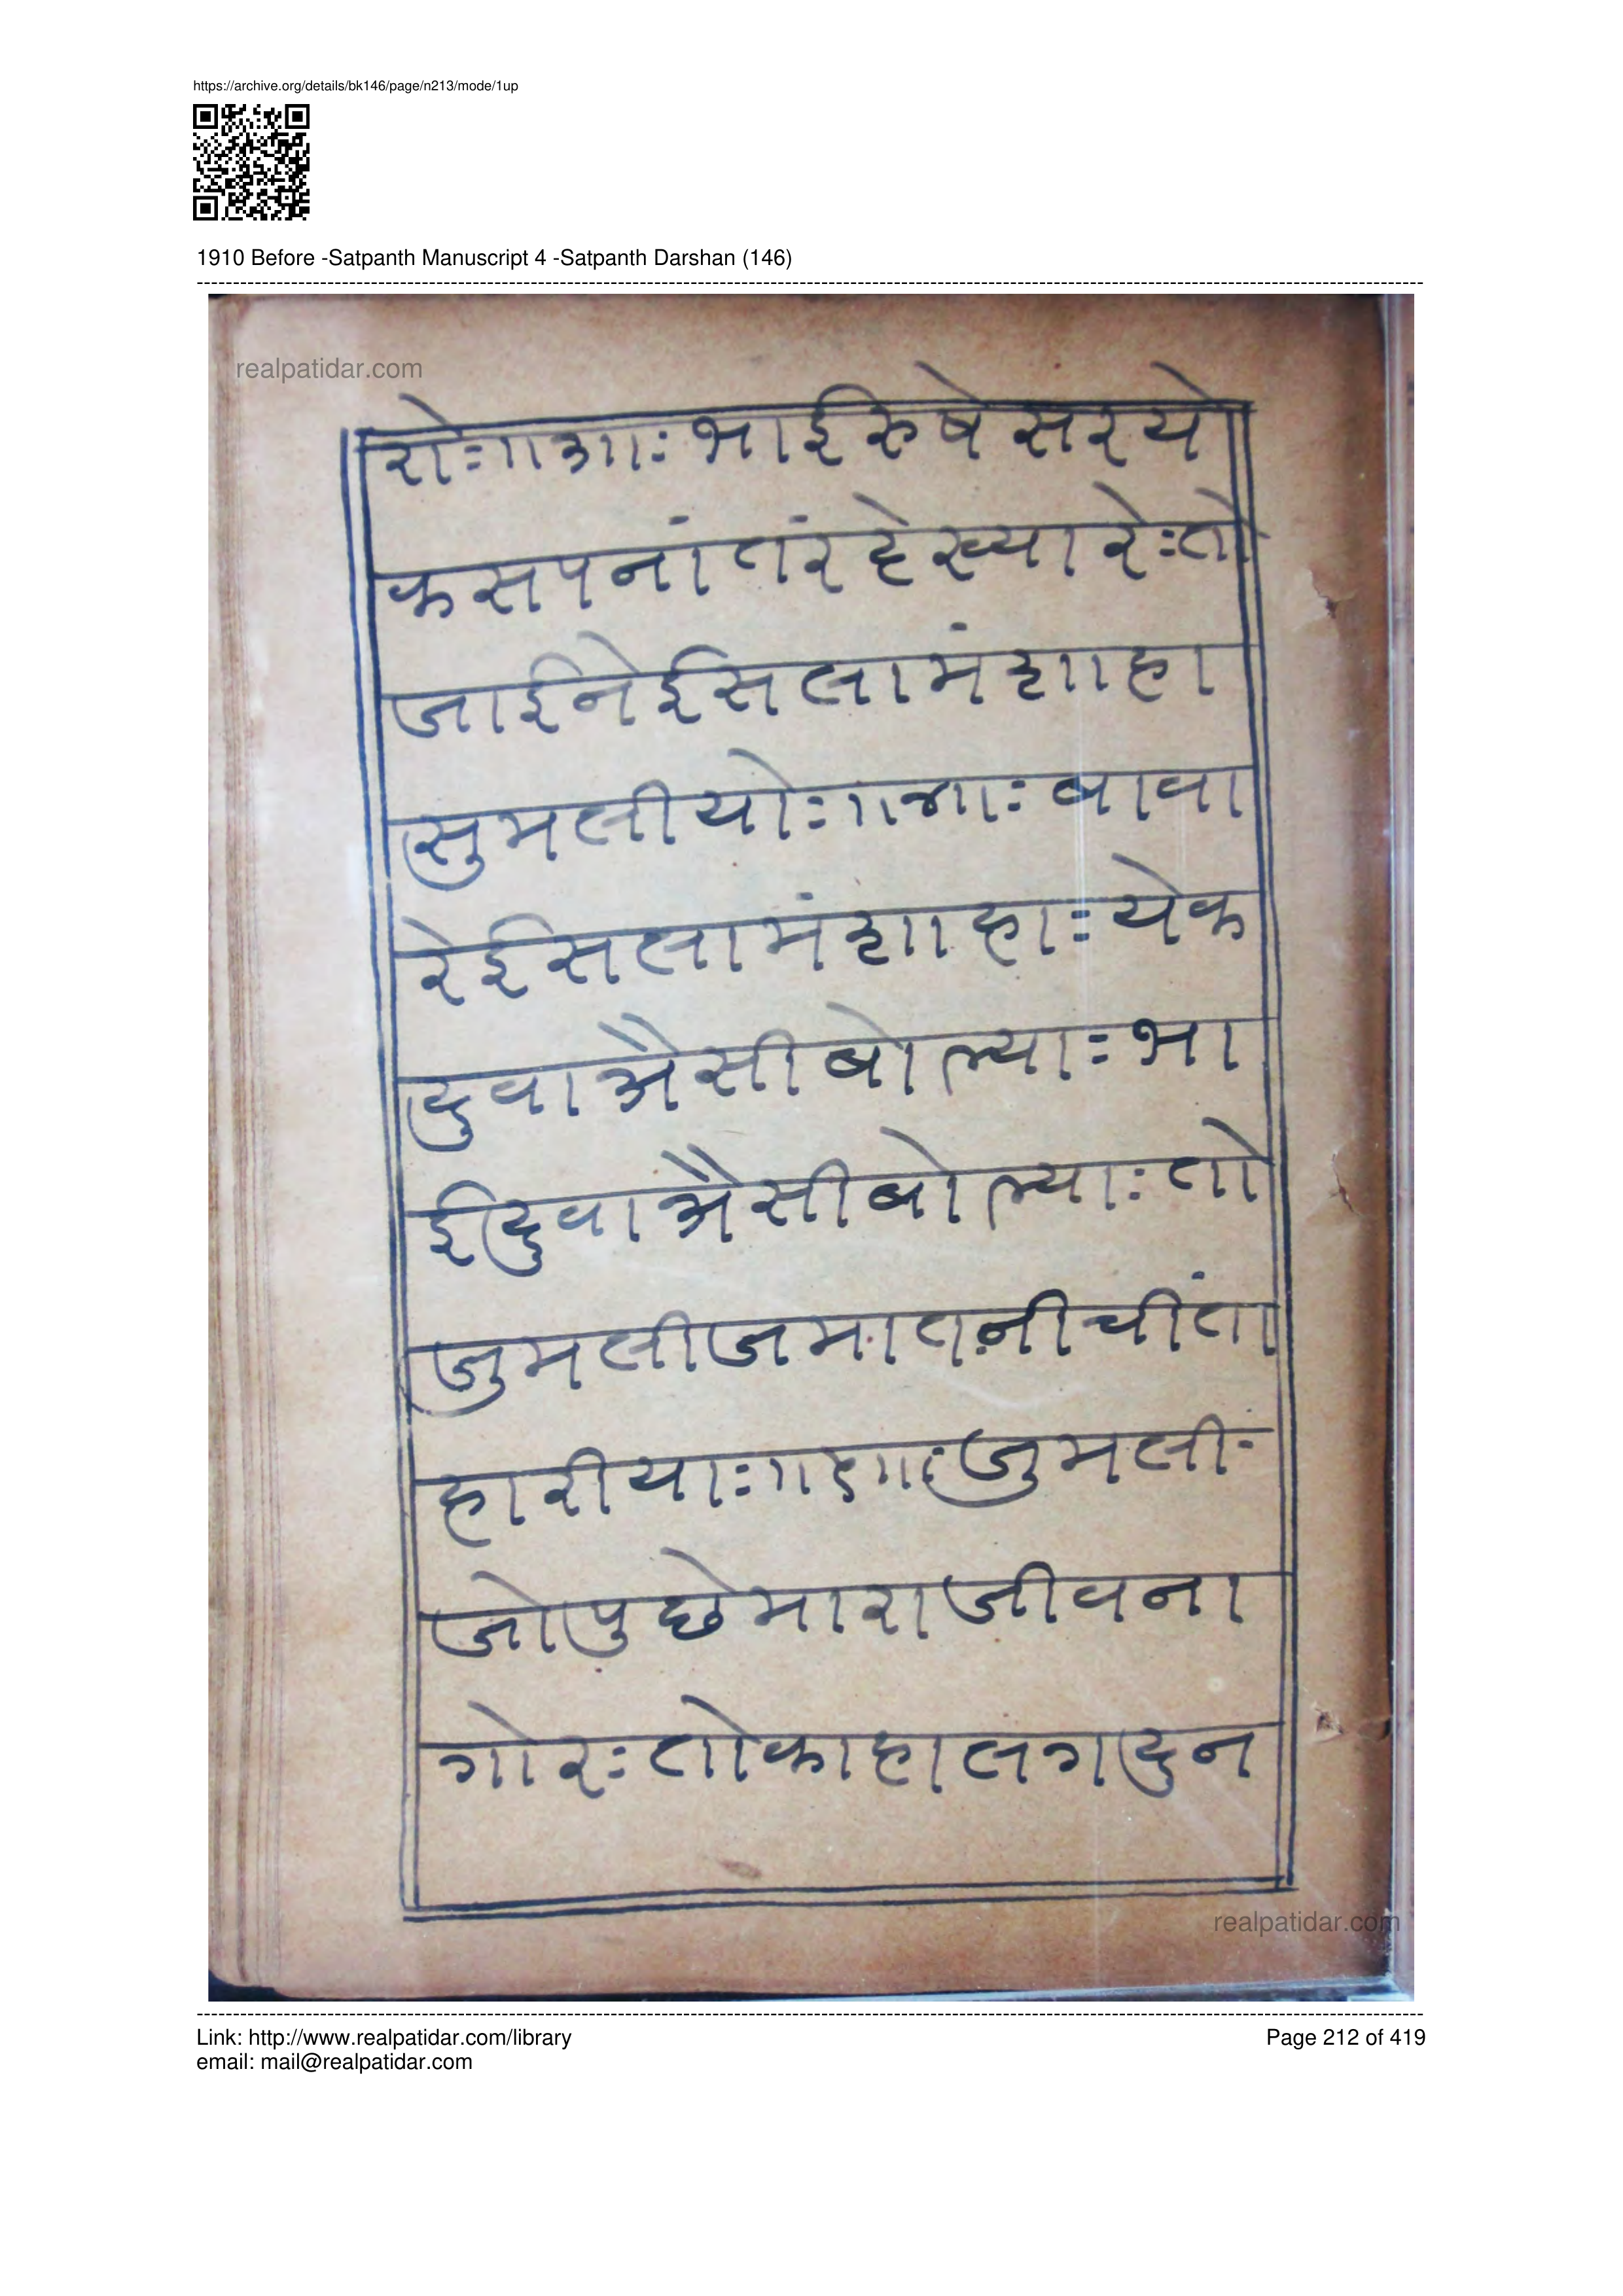 https://archive.org/details/bk146/page/n213/mode/1up
1910 Before -Satpanth Manuscript 4 -Satpanth Darshan (146)
realpatidar.com
रोः॥३॥ः भाईरुषेसरये
कसपनांतंरदेख्यारेःतो
जाईनेईसलामंशाहा
सुमलीयोः॥४॥ः बावा
रेईसलामंशाहाः येक
दुवाअैसीबोल्याः भा
ईदुवाअैसीबोल्याः तो
जुमलीजमातनीचींता
हारीयाः॥५॥ः जुमली-
जोपुछेमाराजीवना
गोरः तोकाहालगदुन
realpatidar.com
Link: http://www.realpatidar.com/library
email: mail@realpatidar.com
Page 212 of 419